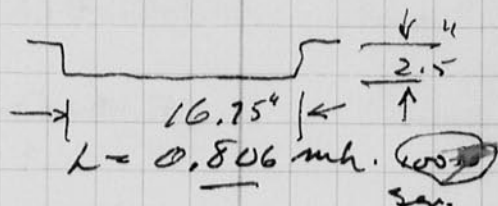 2.5"
16.75"
L = 0.806 mh.